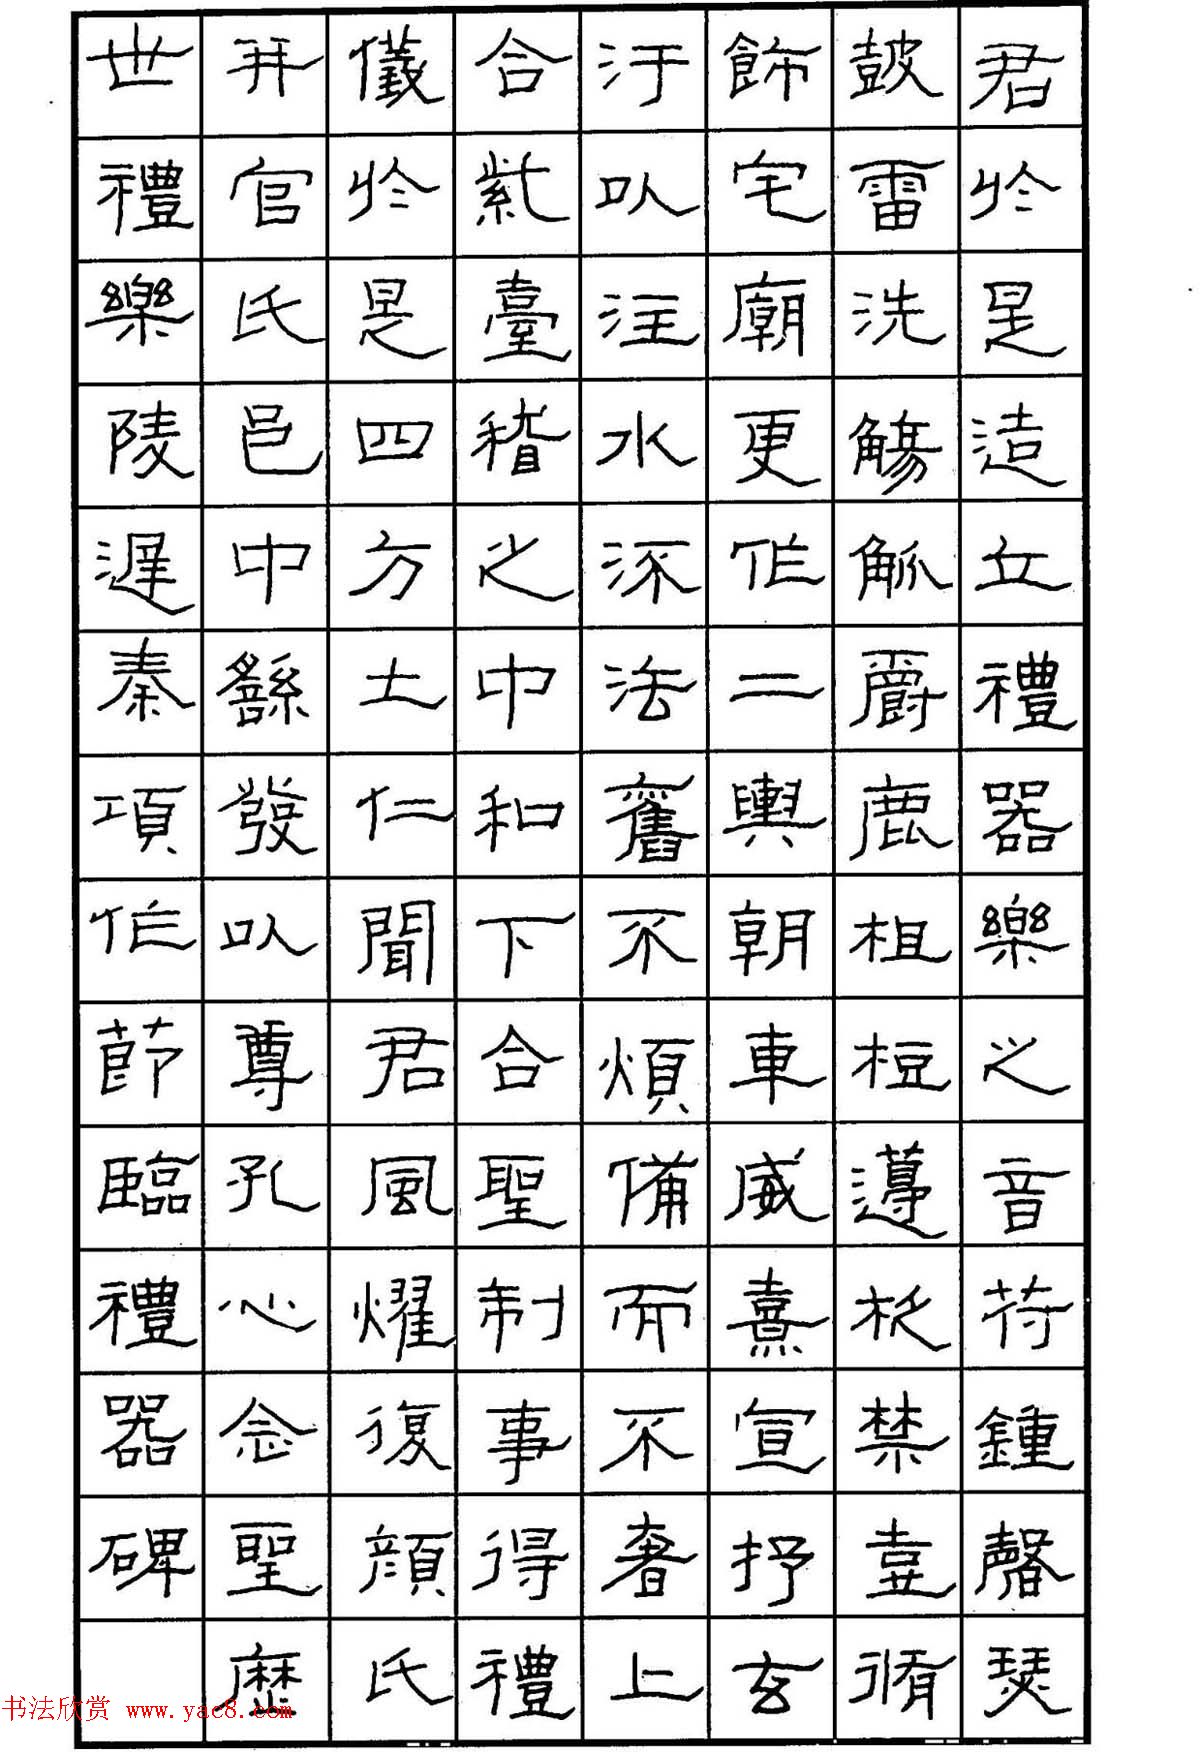 君於是造立禮器樂之音符鍾磬瑟
鼓雷洗觴觚爵鹿柤梪籩柉禁壺脩
飾宅廟更作二輿朝車威熹宣抒玄
汙以注水涂法舊不煩備而不奢上
合紫臺稽之中和下合聖制事得禮
儀於是四方土仁聞君風燿復顏氏
并官氏邑中繇發以尊孔心念聖歷
世禮樂陵遲秦項作
節臨禮器碑
书法欣赏 www.yac8.com